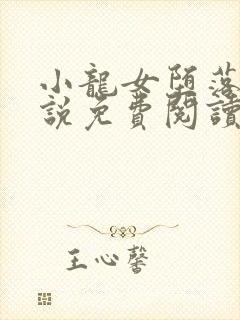 小龍女墮落
說免費閱讀
王心馨